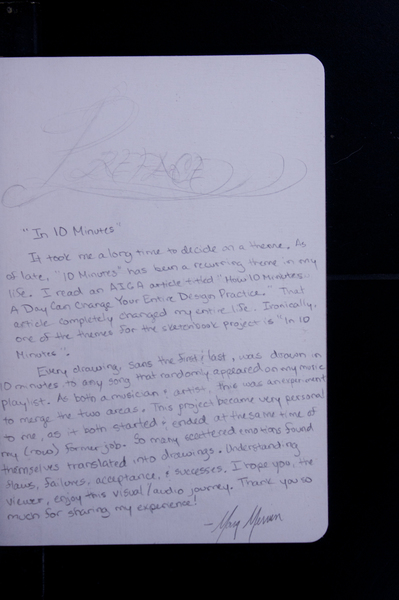 PREFACE
"In 10 Minutes"
It took me a long time to decide on a theme. As
of late, "10 Minutes" has been a recurring theme in my
life. I read an AIGA article titled "How 10 Minutes
A Day Can Change Your Entire Design Practice." That
article completely changed my entire life. Ironically,
one of the themes for the sketchbook project is "In 10
Minutes".
Every drawing, sans the first & last, was drawn in
10 minutes to any song that randomly appeared on my music
playlist. As both a musician & artist, this was an experiment
to merge the two areas. This project became very personal
to me, as it both started & ended at the same time of
my (now) former job. So many scattered emotions found
themselves translated into drawings. Understanding
flaws, failures, acceptance, & successes. I hope you, the
viewer, enjoy this visual/audio journey. Thank you so
much for sharing my experience!